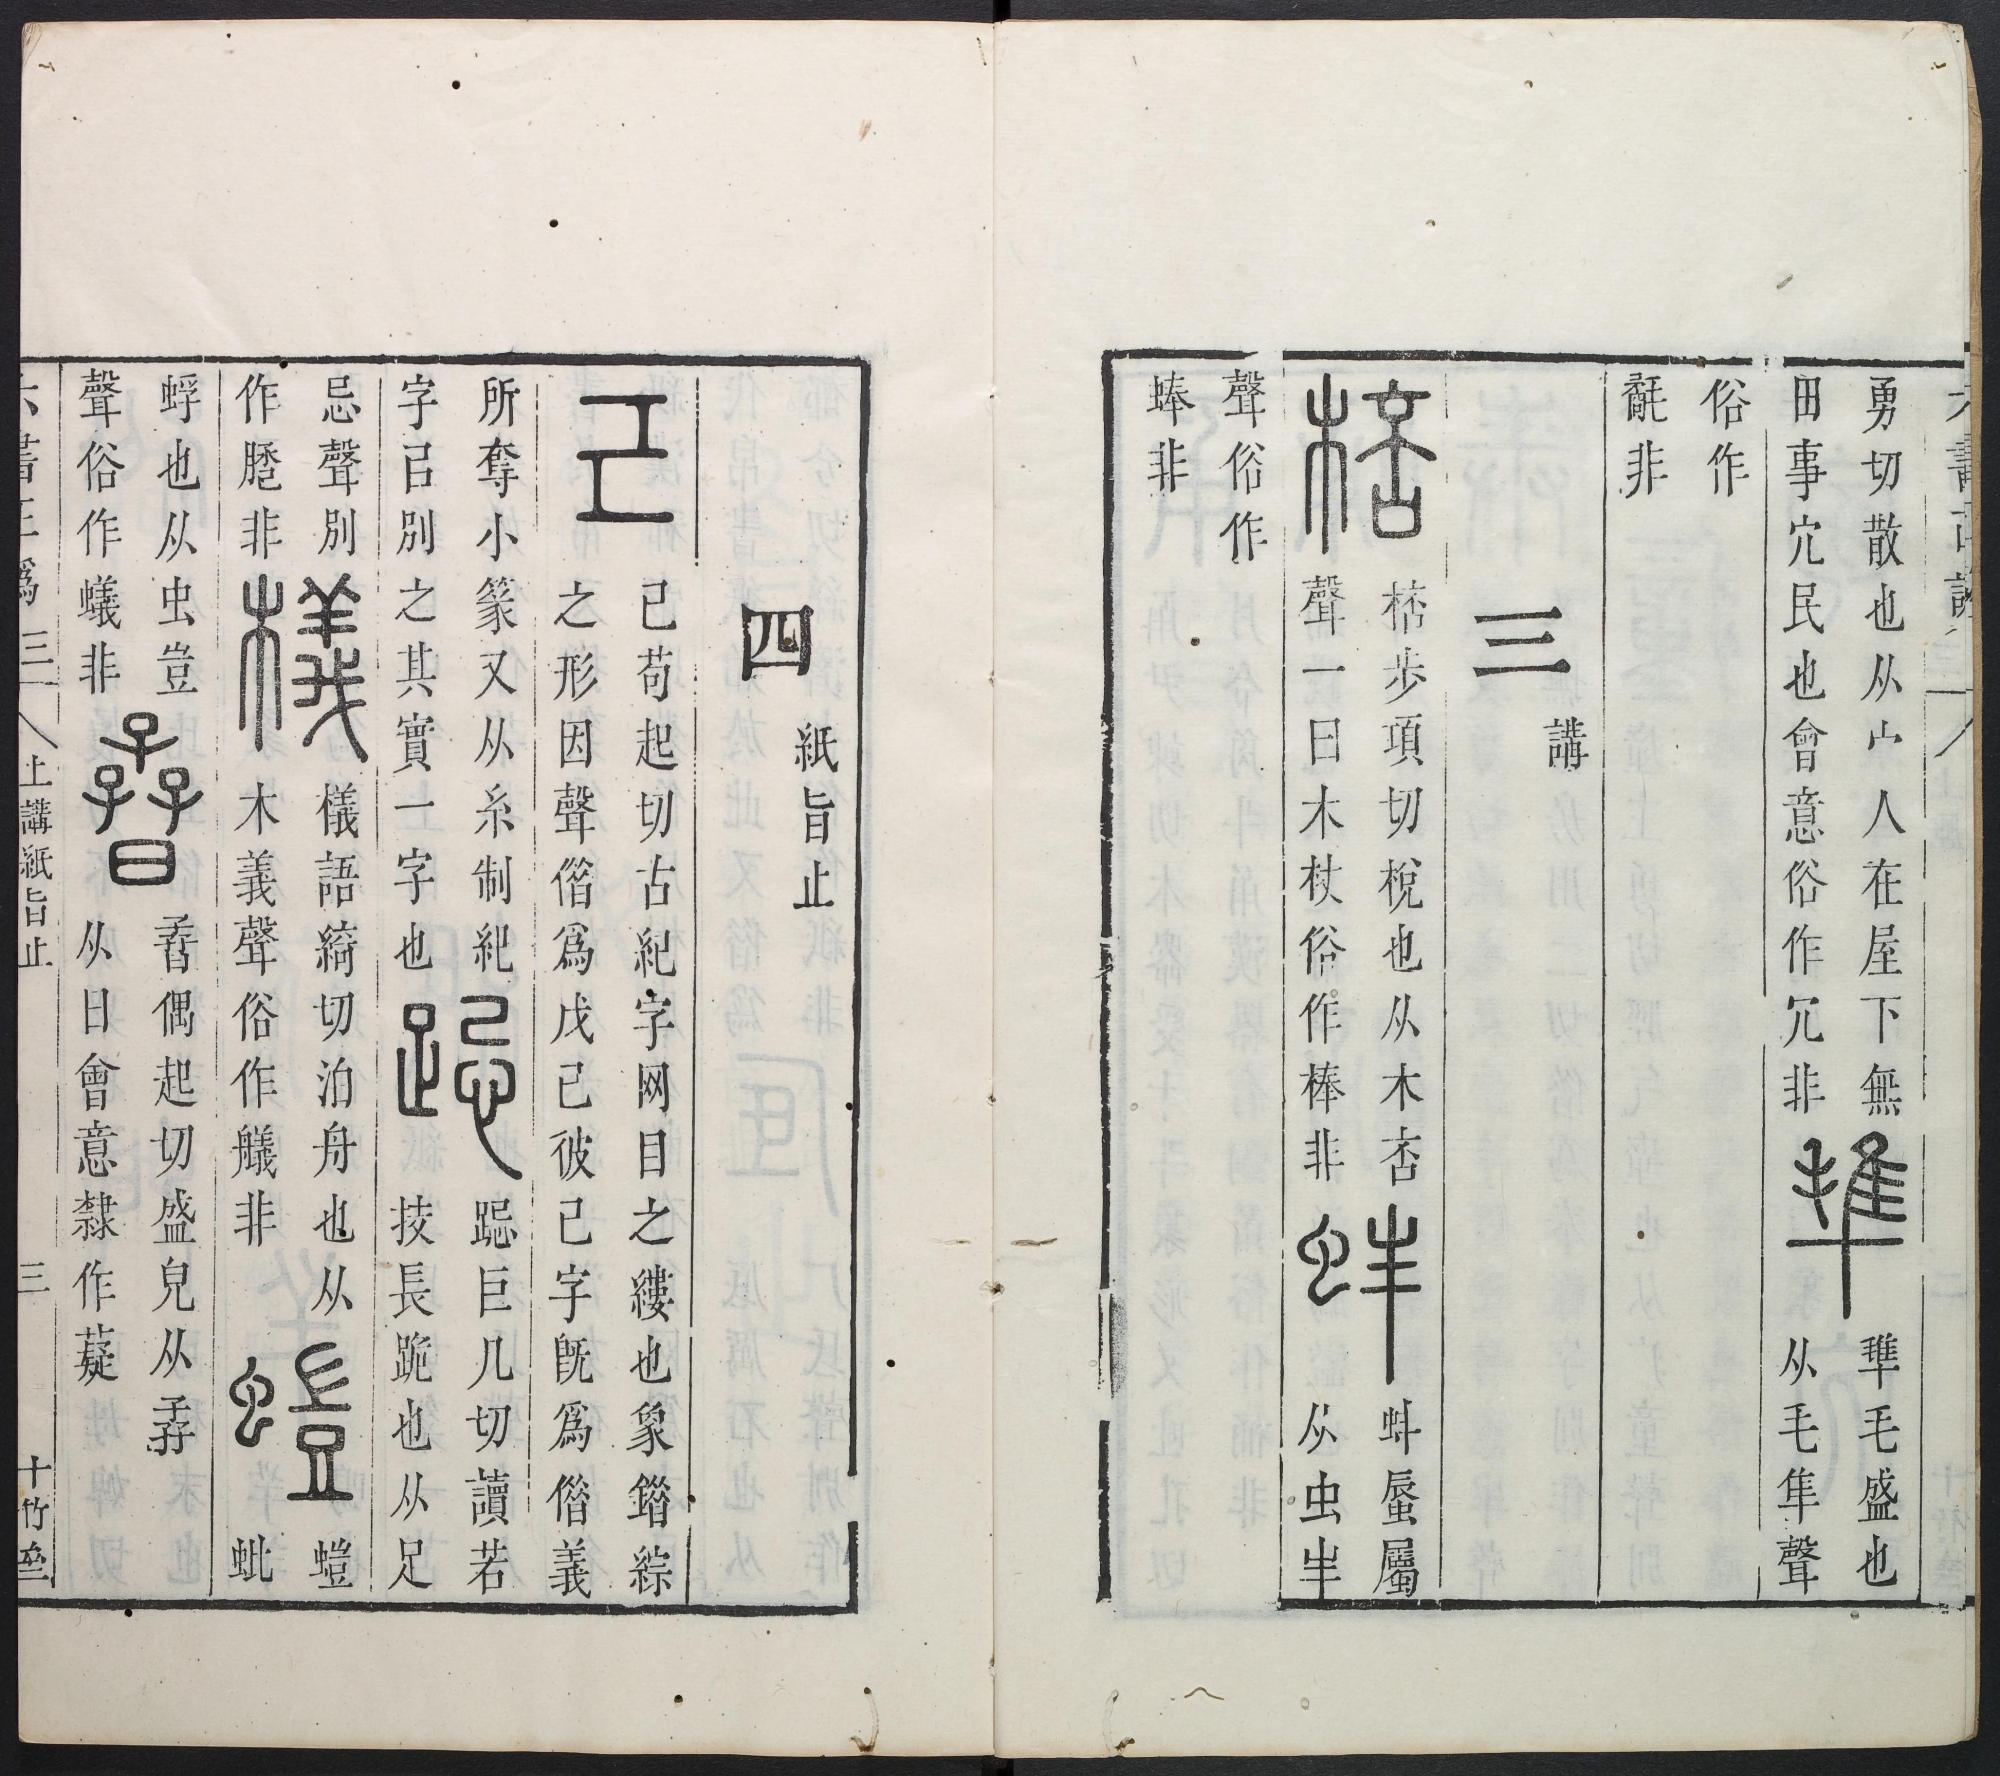 勇切散也从宀人在屋下無
田事宂民也會意俗作冗非
毴毛盛也
从毛隼聲
俗作
氄非
三
講
棓步項切梲也从木咅
聲一曰木杖俗作棒非
蚌蜃屬
从虫丰
聲俗作
蜯非
四
紙旨止
己
己苟起切古紀字网目之縷也象錯綜
之形因聲借爲戊己彼己字旣爲借義
所奪小篆又从糸制紀
字㠯別之其實一字也
跽巨几切讀若
技長跪也从足
忌聲別
作䠆非
檥語綺切泊舟也从
木義聲俗作艤非
螘
蚍
蜉也从虫豈
聲俗作蟻非
孴偶起切盛皃从孨
从日會意隸作薿
六書正譌 三 上講紙旨止 三 十竹齋